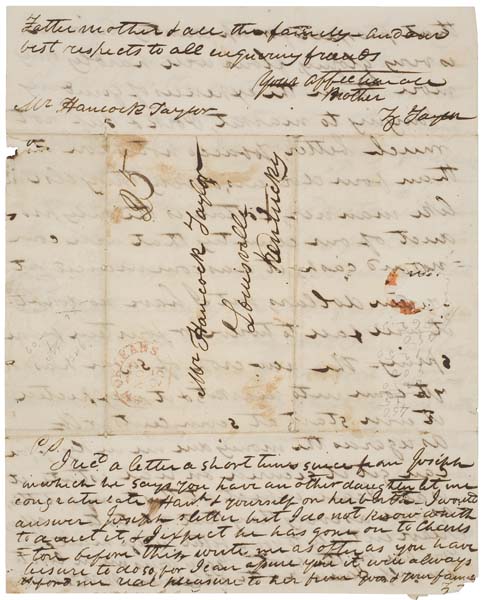 Father mother & all the family – and our
best respects to all enquiring friends
Your affectionate
Brother
Z. Taylor
Mr Hancock Taylor
25
Mr Hancock Taylor
Louisville
Kentucky
P.S.
I recd a letter a short time since from Joseph
in which he says you have another daughter let me
congratulate & yourself on her birth. I would
answer Joseph's letter but I do not know where
to direct it, & I expect he has gone on to Charles
=ton before this, write me as often as you have
leisure to do so, for I can assure you it will always
afford me real pleasure to hear from you & your family
Z